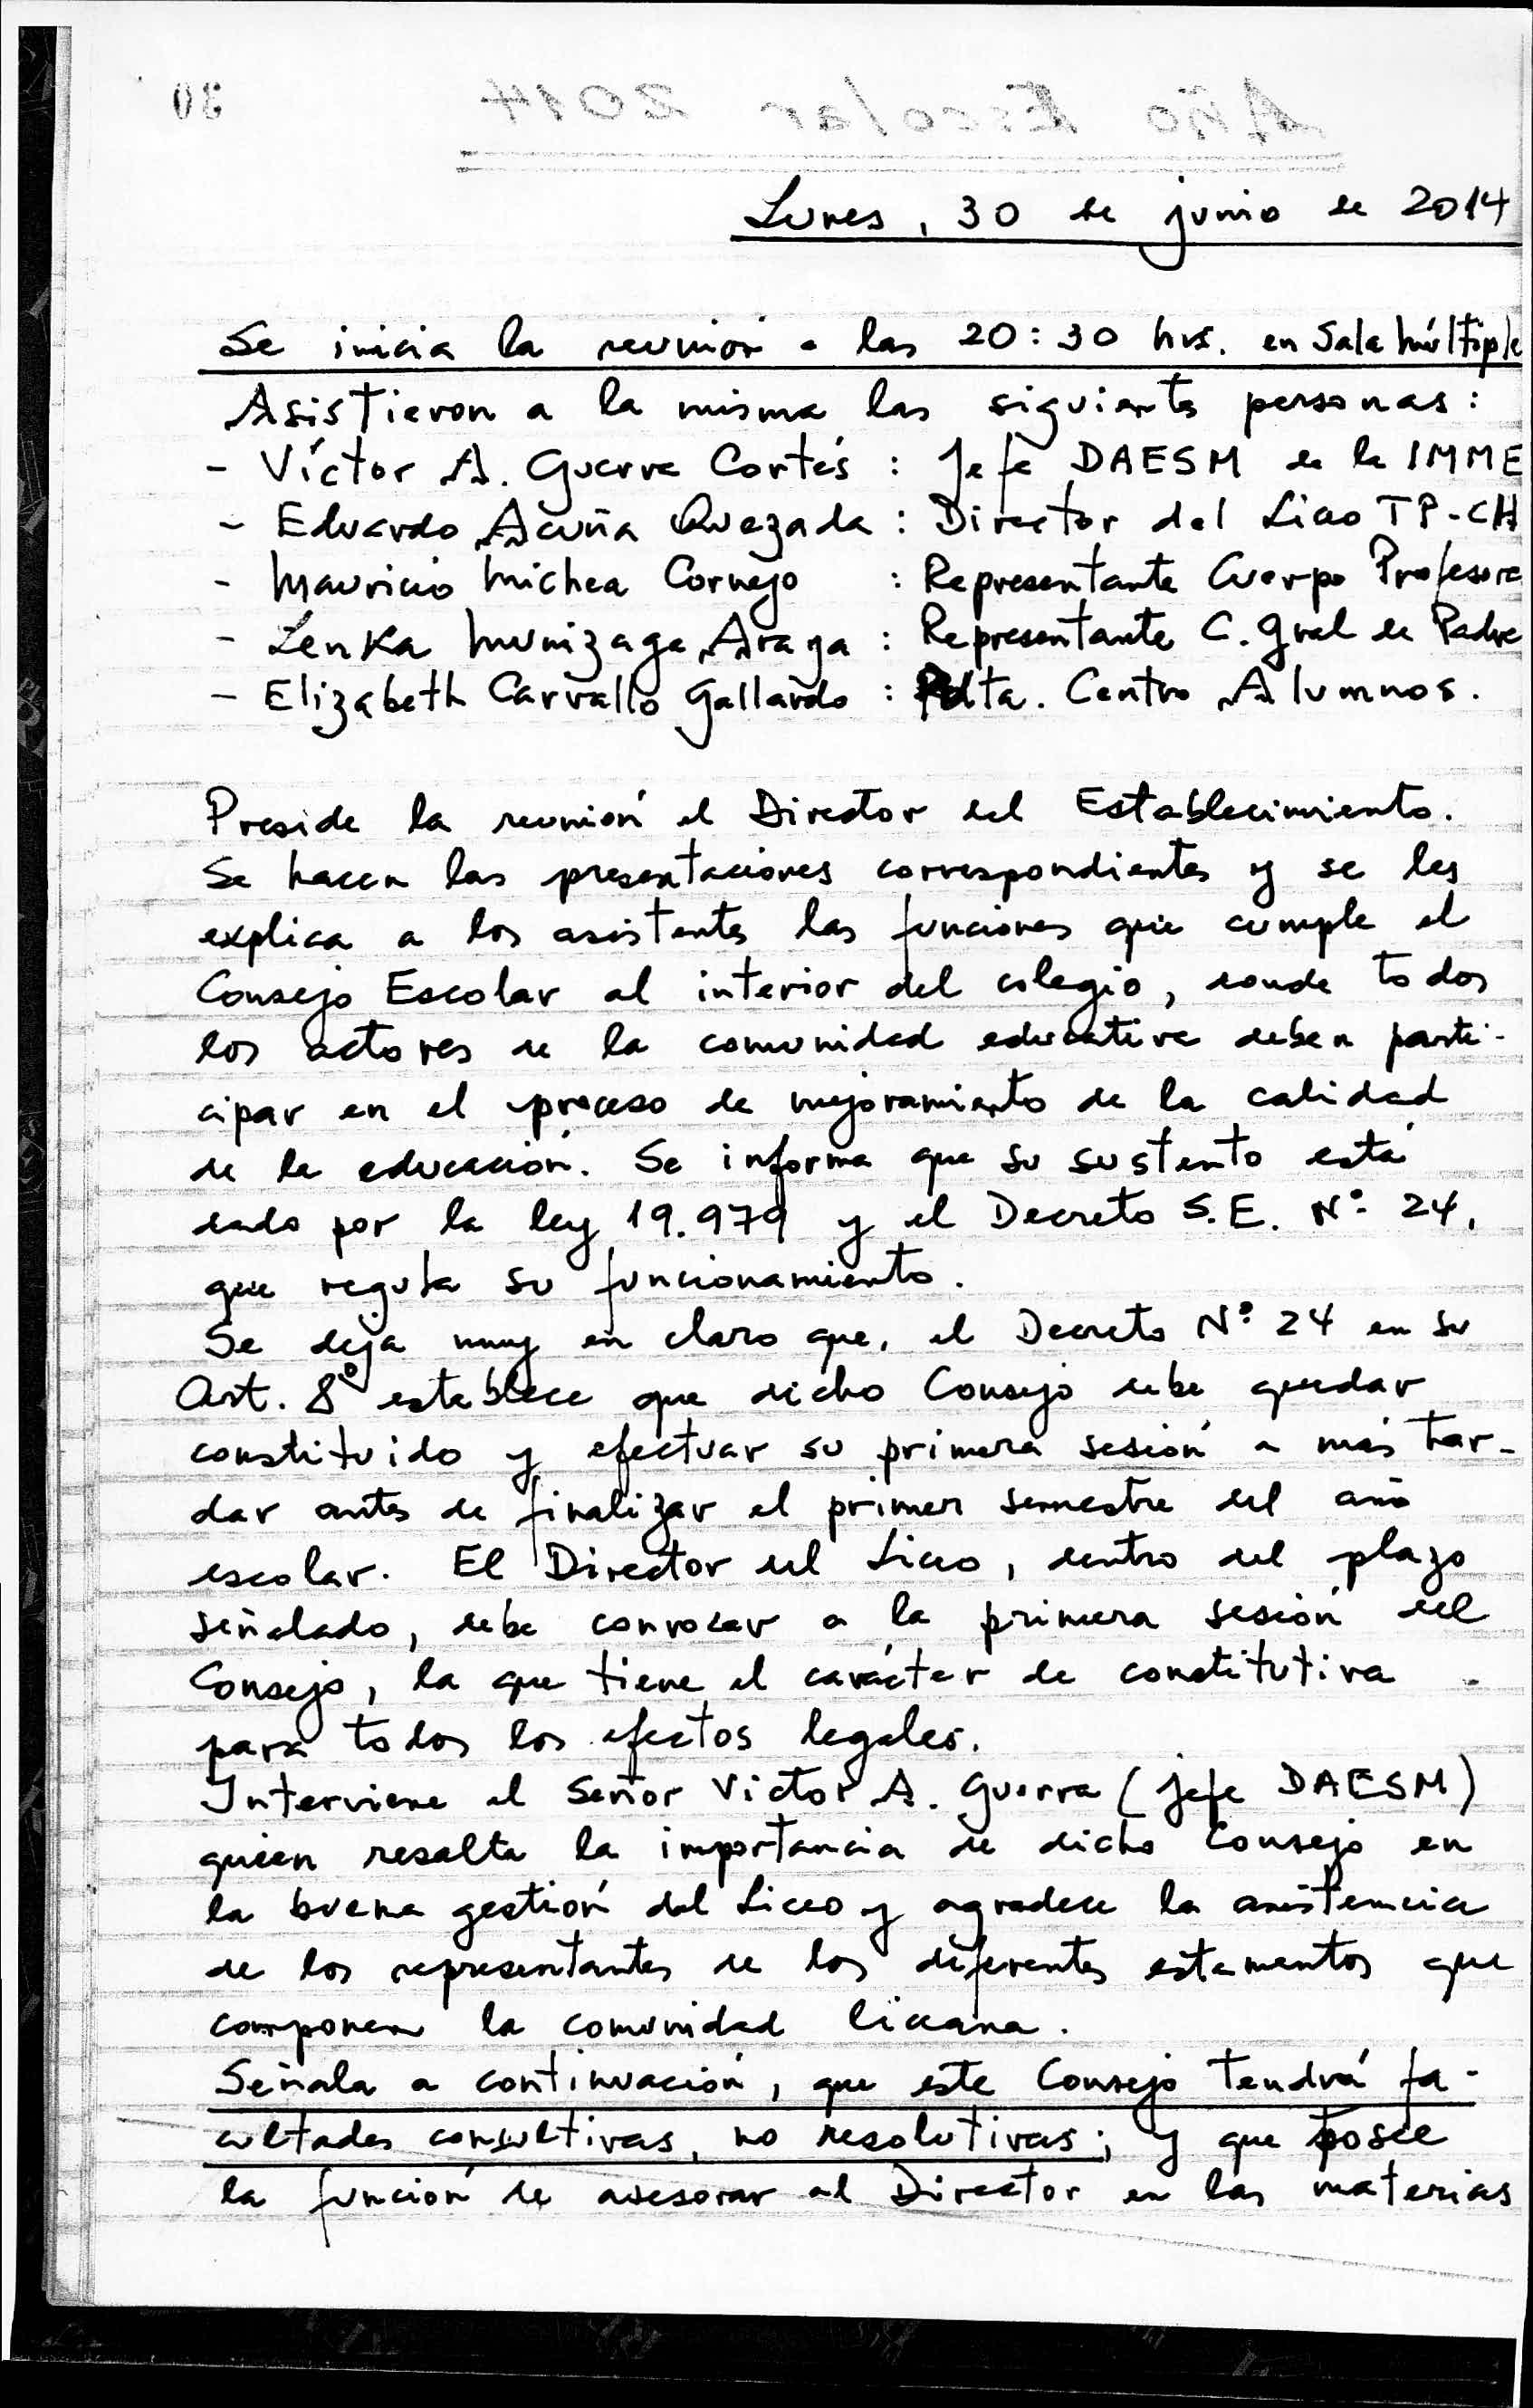 30
Año Escolar 2014
Lunes, 30 de junio de 2014
Se inicia la reunión a las 20:30 hrs. en Sala Múltiple
Asistieron a la misma las siguientes personas:
- Víctor A. Guerra Cortés : Jefe DAESM de la IMME
- Eduardo Acuña Quezada : Director del Liceo TP-CH
- Mauricio Michea Cornejo : Representante Cuerpo Profesore
- Lenka Munizaga Araya : Representante C. Gral de Padre
- Elizabeth Carvallo Gallardo : Pdta. Centro Alumnos.
Preside la reunión el Director del Establecimiento.
Se hacen las presentaciones correspondientes y se les
explica a los asistentes las funciones que cumple el
Consejo Escolar al interior del colegio, donde todos
los actores de la comunidad educativa deben parti-
cipar en el proceso de mejoramiento de la calidad
de la educación. Se informa que su sustento está
dado por la ley 19.979 y el Decreto S.E. Nº 24,
que regula su funcionamiento.
Se deja muy en claro que, el Decreto Nº 24 en su
Art. 8º establece que dicho Consejo debe quedar
constituido y efectuar su primera sesión a más tar-
dar antes de finalizar el primer semestre del año
escolar. El Director del Liceo, dentro del plazo
señalado, debe convocar a la primera sesión del
Consejo, la que tiene el carácter de constitutiva
para todos los efectos legales.
Interviene el Señor Victor A. Guerra (Jefe DAESM)
quien resalta la importancia de dicho Consejo en
la buena gestión del Liceo y agradece la asistencia
de los representantes de los diferentes estamentos que
componen la comunidad liceana.
Señala a continuación, que este Consejo tendrá fa-
cultades consultivas, no resolutivas; y que posee
la función de asesorar al Director en las materias